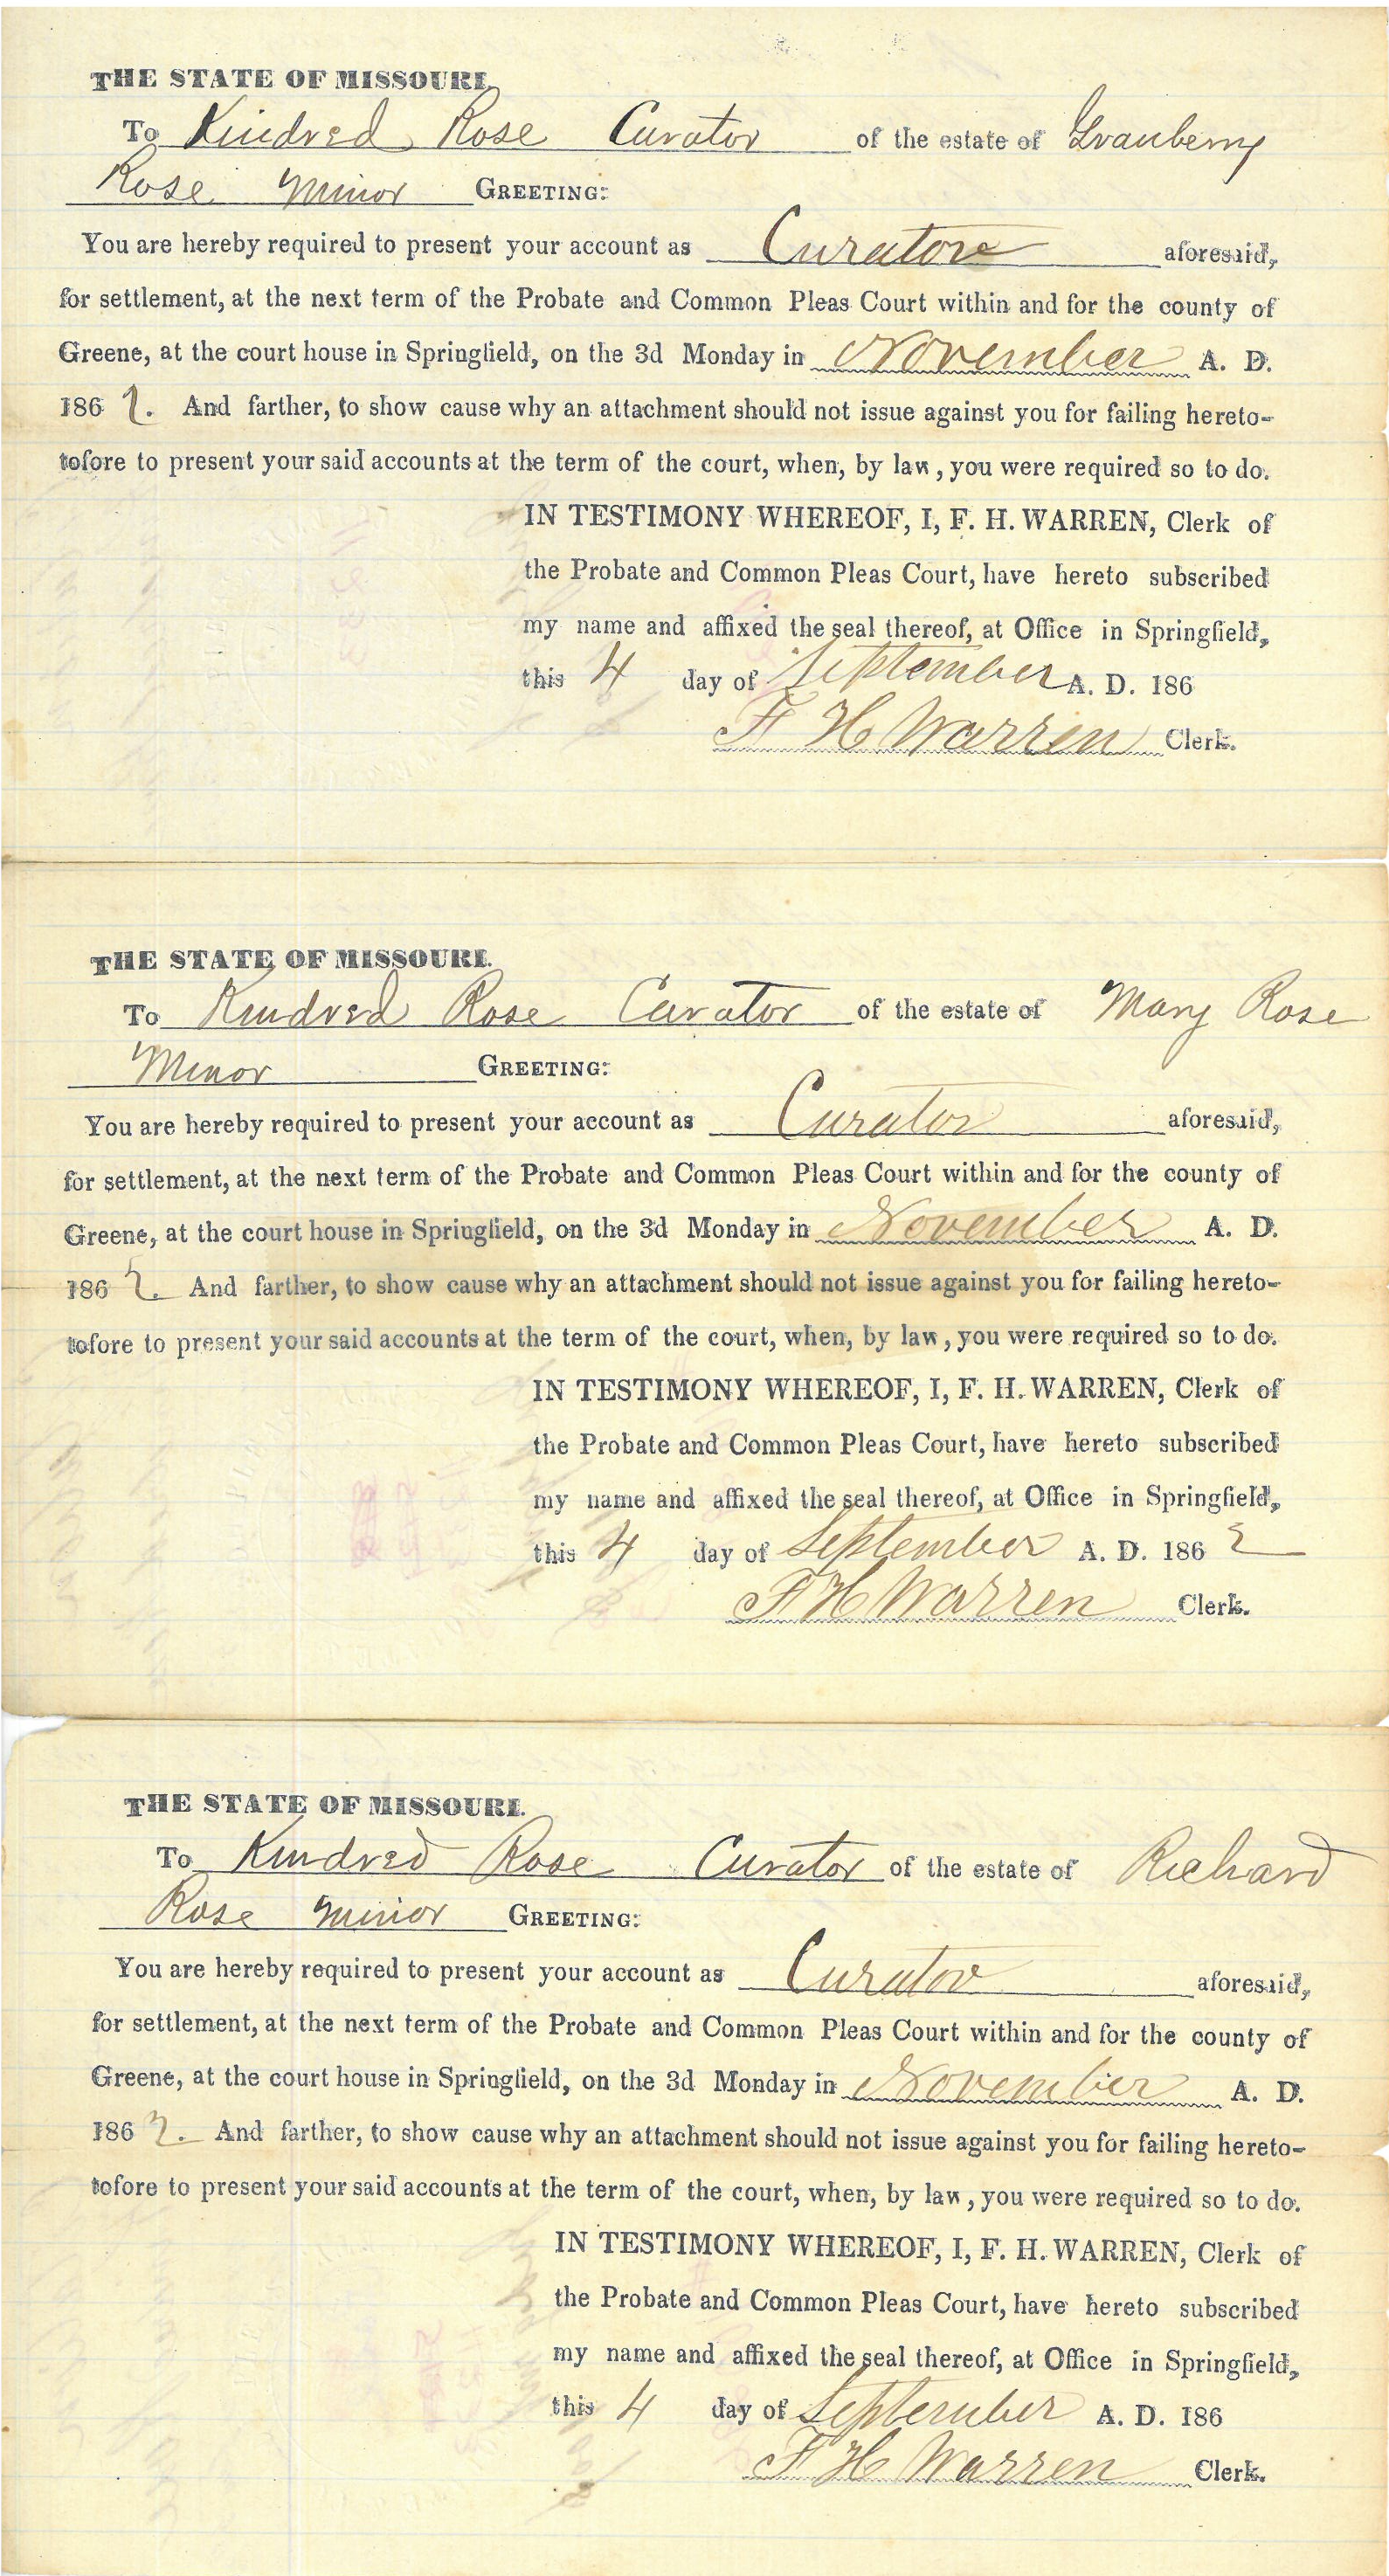 THE STATE OF MISSOURI.
To Kindred Rose Curator of the estate of Granberry
Rose Minor GREETING:
You are hereby required to present your account as Curator aforesaid,
for settlement, at the next term of the Probate and Common Pleas Court within and for the county of
Greene, at the court house in Springfield, on the 3d Monday in November A. D.
1862. And farther, to show cause why an attachment should not issue against you for failing hereto-
tofore to present your said accounts at the term of the court, when, by law, you were required so to do.
IN TESTIMONY WHEREOF, I, F. H. WARREN, Clerk of
the Probate and Common Pleas Court, have hereto subscribed
my name and affixed the seal thereof, at Office in Springfield,
this 4 day of September A. D. 186
F H Warren Clerk.
THE STATE OF MISSOURI.
To Kindred Rose Curator of the estate of Mary Rose
Minor GREETING:
You are hereby required to present your account as Curator aforesaid,
for settlement, at the next term of the Probate and Common Pleas Court within and for the county of
Greene, at the court house in Springfield, on the 3d Monday in November A. D.
1862. And farther, to show cause why an attachment should not issue against you for failing hereto-
tofore to present your said accounts at the term of the court, when, by law, you were required so to do.
IN TESTIMONY WHEREOF, I, F. H. WARREN, Clerk of
the Probate and Common Pleas Court, have hereto subscribed
my name and affixed the seal thereof, at Office in Springfield,
this 4 day of September A. D. 1862
F H Warren Clerk.
THE STATE OF MISSOURI.
To Kindred Rose Curator of the estate of Richard
Rose Minor GREETING:
You are hereby required to present your account as Curator aforesaid,
for settlement, at the next term of the Probate and Common Pleas Court within and for the county of
Greene, at the court house in Springfield, on the 3d Monday in November A. D.
1862. And farther, to show cause why an attachment should not issue against you for failing hereto-
tofore to present your said accounts at the term of the court, when, by law, you were required so to do.
IN TESTIMONY WHEREOF, I, F. H. WARREN, Clerk of
the Probate and Common Pleas Court, have hereto subscribed
my name and affixed the seal thereof, at Office in Springfield,
this 4 day of September A. D. 186
F H Warren Clerk.